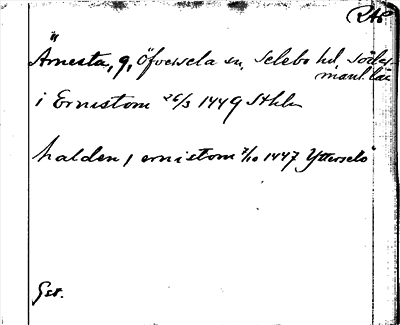 Ärnesta, g, Öfversela sn, Selebo hd, Söder-
manl län
i Ernistom 26/3 1449 Sthlm
halden, i ernistom 7/10 1447 Ytterselö